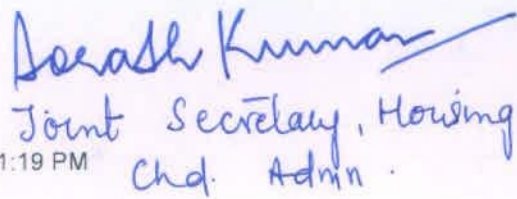 Kumar
Joint Secretary, Housing
1:19 PM
Chd. Admn.